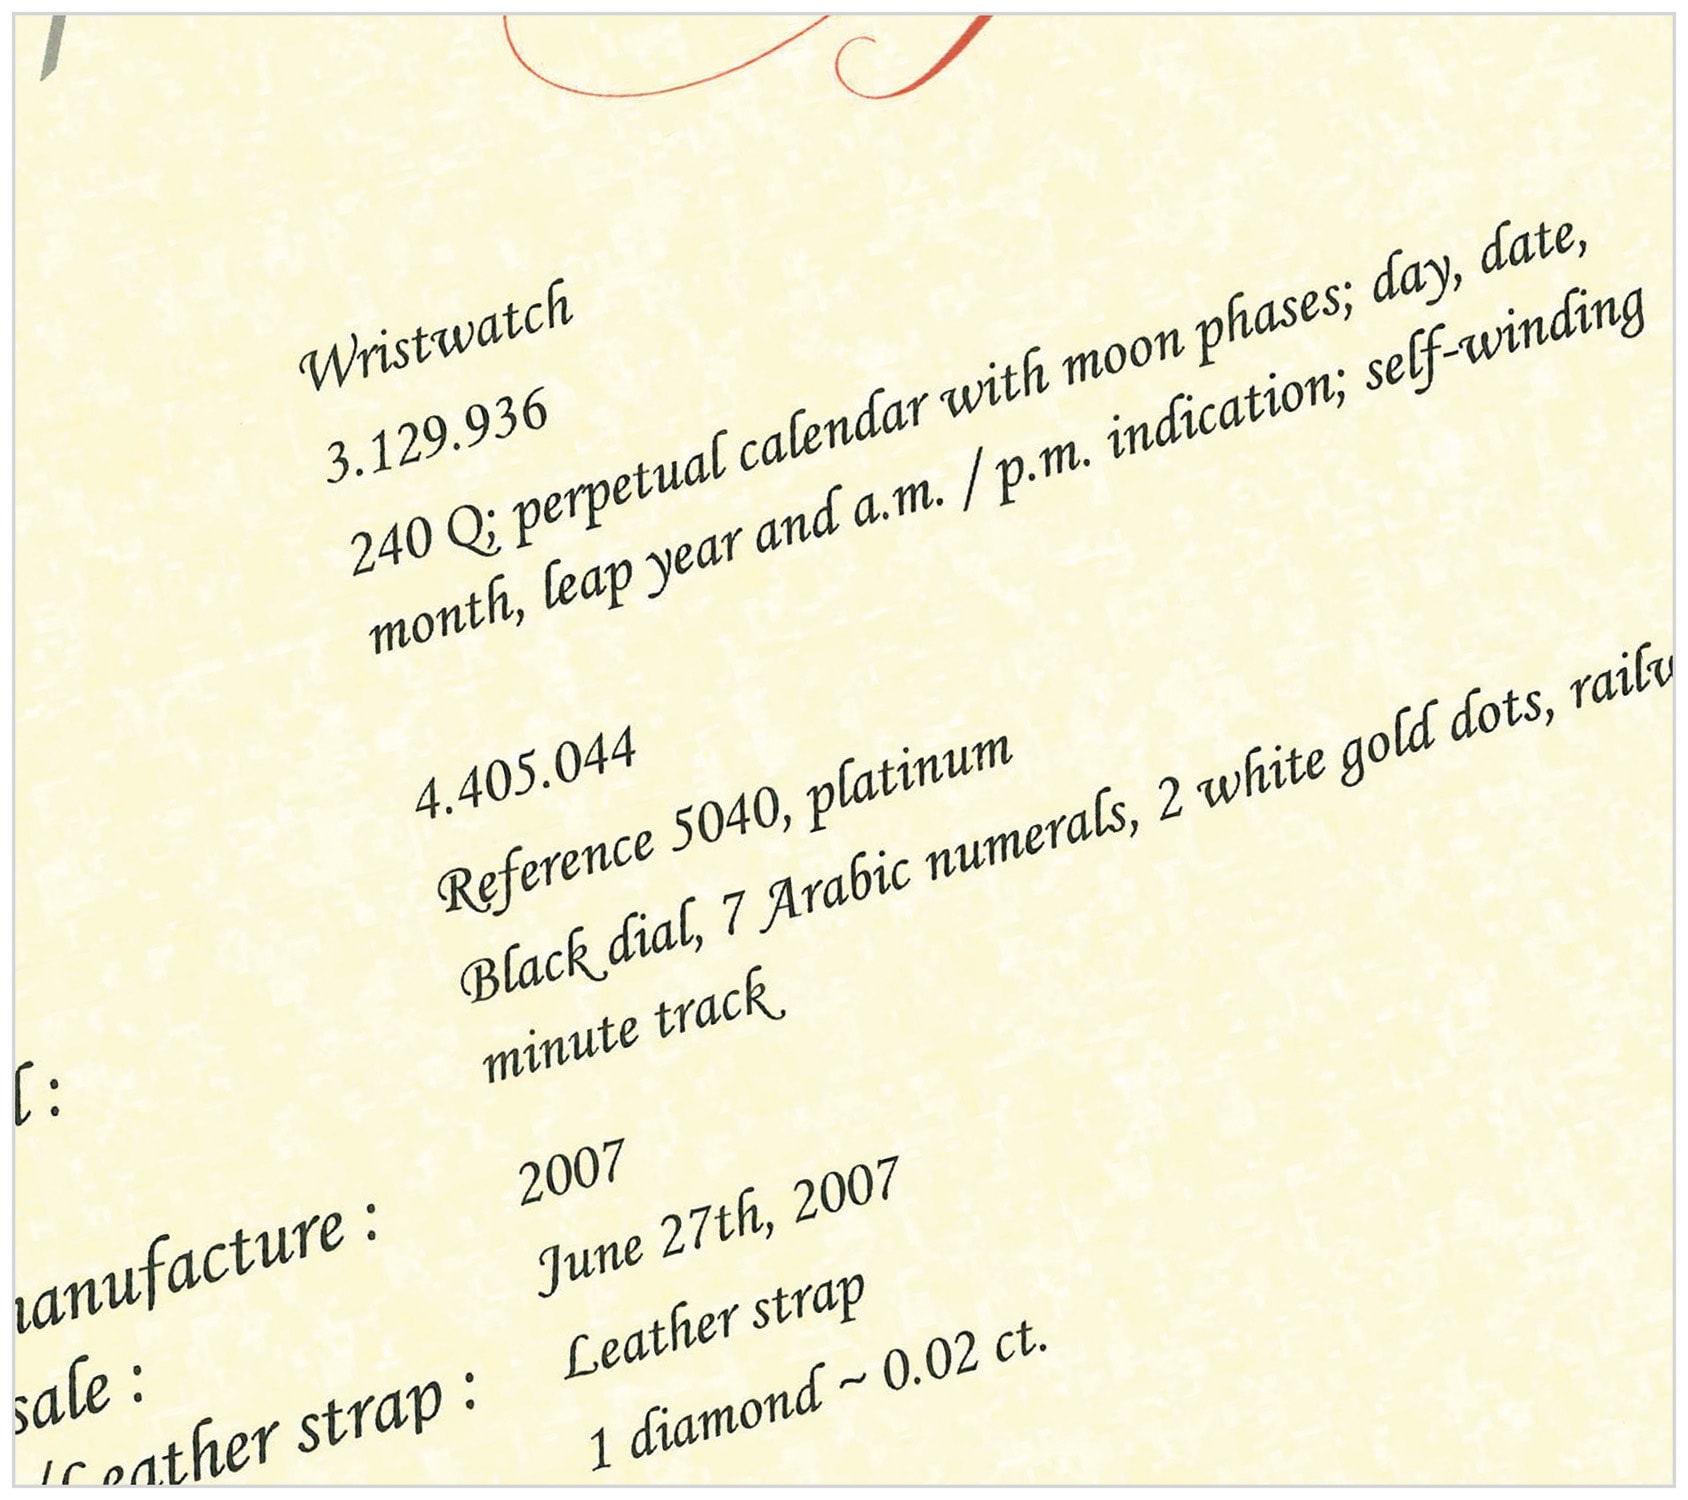 Wristwatch
3.129.936
240 Q; perpetual calendar with moon phases; day, date,
month, leap year and a.m. / p.m. indication; self-winding
4.405.044
Reference 5040, platinum
Black dial, 7 Arabic numerals, 2 white gold dots,
minute track
l :
2007
manufacture : June 27th, 2007
sale : Leather strap
/Leather strap : 1 diamond ~ 0.02 ct.